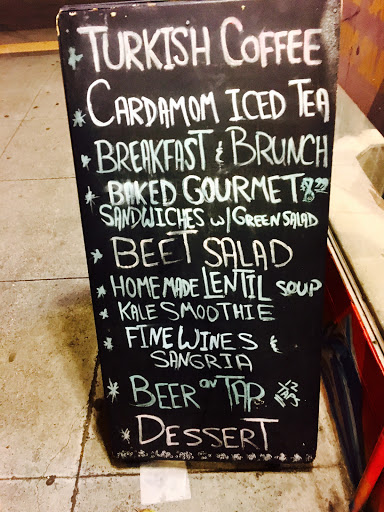 * TURKISH COFFEE
* CARDAMOM ICED TEA
* BREAKFAST & BRUNCH
* BAKED GOURMET
SANDWICHES w/ GREEN SALAD
* BEET SALAD
* HOMEMADE LENTIL SOUP
* KALE SMOOTHIE
* FINE WINES &
SANGRIA
* BEER on TAP
* DESSERT